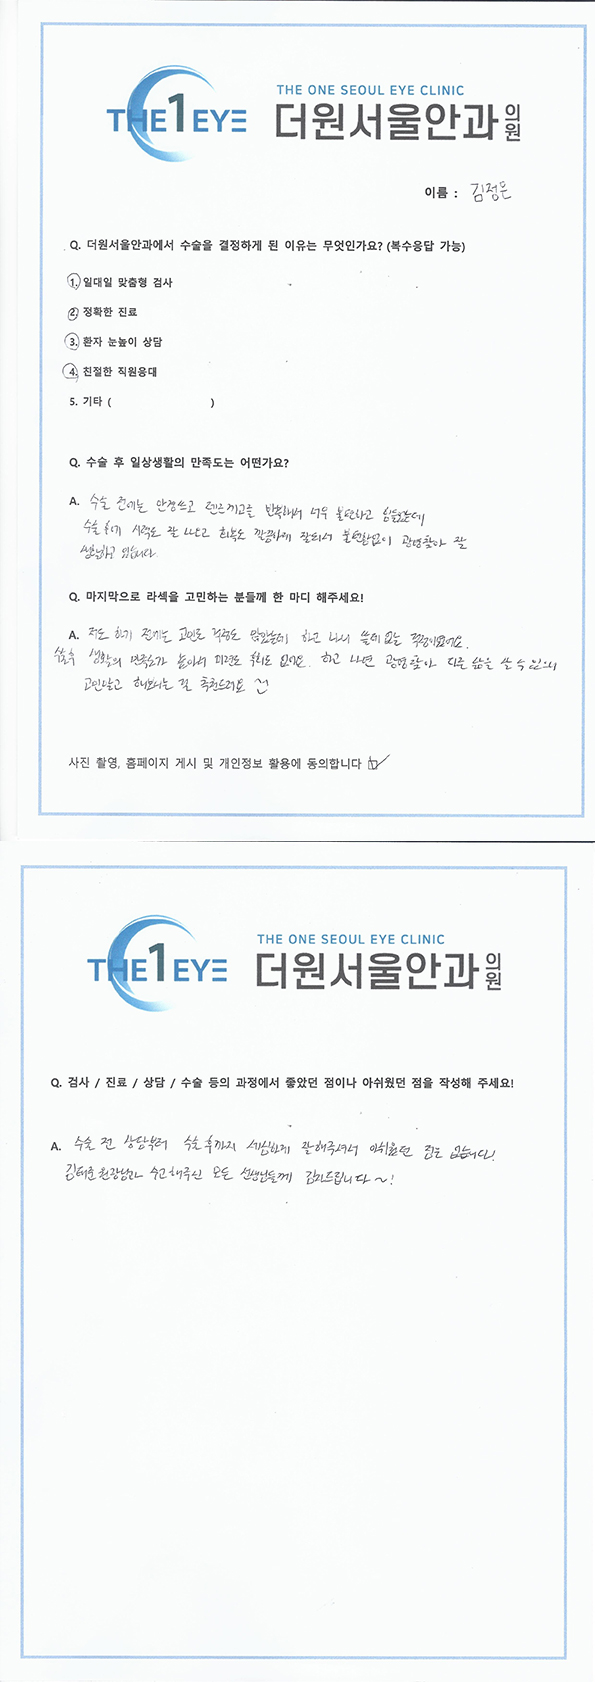 THE 1 EYE
THE ONE SEOUL EYE CLINIC
더원서울안과의원
이름 : 김정은
Q. 더원서울안과에서 수술을 결정하게 된 이유는 무엇인가요? (복수응답 가능)
1. 일대일 맞춤형 검사
2. 정확한 진료
3. 환자 눈높이 상담
4. 친절한 직원응대
5. 기타 ( )
Q. 수술 후 일상생활의 만족도는 어떤가요?
A. 수술 전에는 안경쓰고 렌즈끼고를 반복해서 너무 불편하고 힘들었는데
수술하기 시력도 잘 나오고 회복도 깔끔하게 잘되서 불편함없이 광명찾아 잘
생활하고 있습니다.
Q. 마지막으로 라섹을 고민하는 분들께 한 마디 해주세요!
A. 저도 하기 전에는 고민도 걱정도 많았는데 하고 나니 쓸데없는 걱정이었어요.
수술후 생활의 만족도가 높아서 미련도 후회도 없어요. 하고 나면 광명찾아 다른 삶을 살 수 있으니
고민말고 해보시는 걸 추천드려요
사진 촬영, 홈페이지 게시 및 개인정보 활용에 동의합니다
THE 1 EYE
THE ONE SEOUL EYE CLINIC
더원서울안과의원
Q. 검사 / 진료 / 상담 / 수술 등의 과정에서 좋았던 점이나 아쉬웠던 점을 작성해 주세요!
A. 수술 전 상담부터 수술 후까지 세심하게 잘해주셔서 아쉬웠던 점은 없습니다!
김태준 원장님과 수고해주신 모든 선생님들께 감사드립니다~!